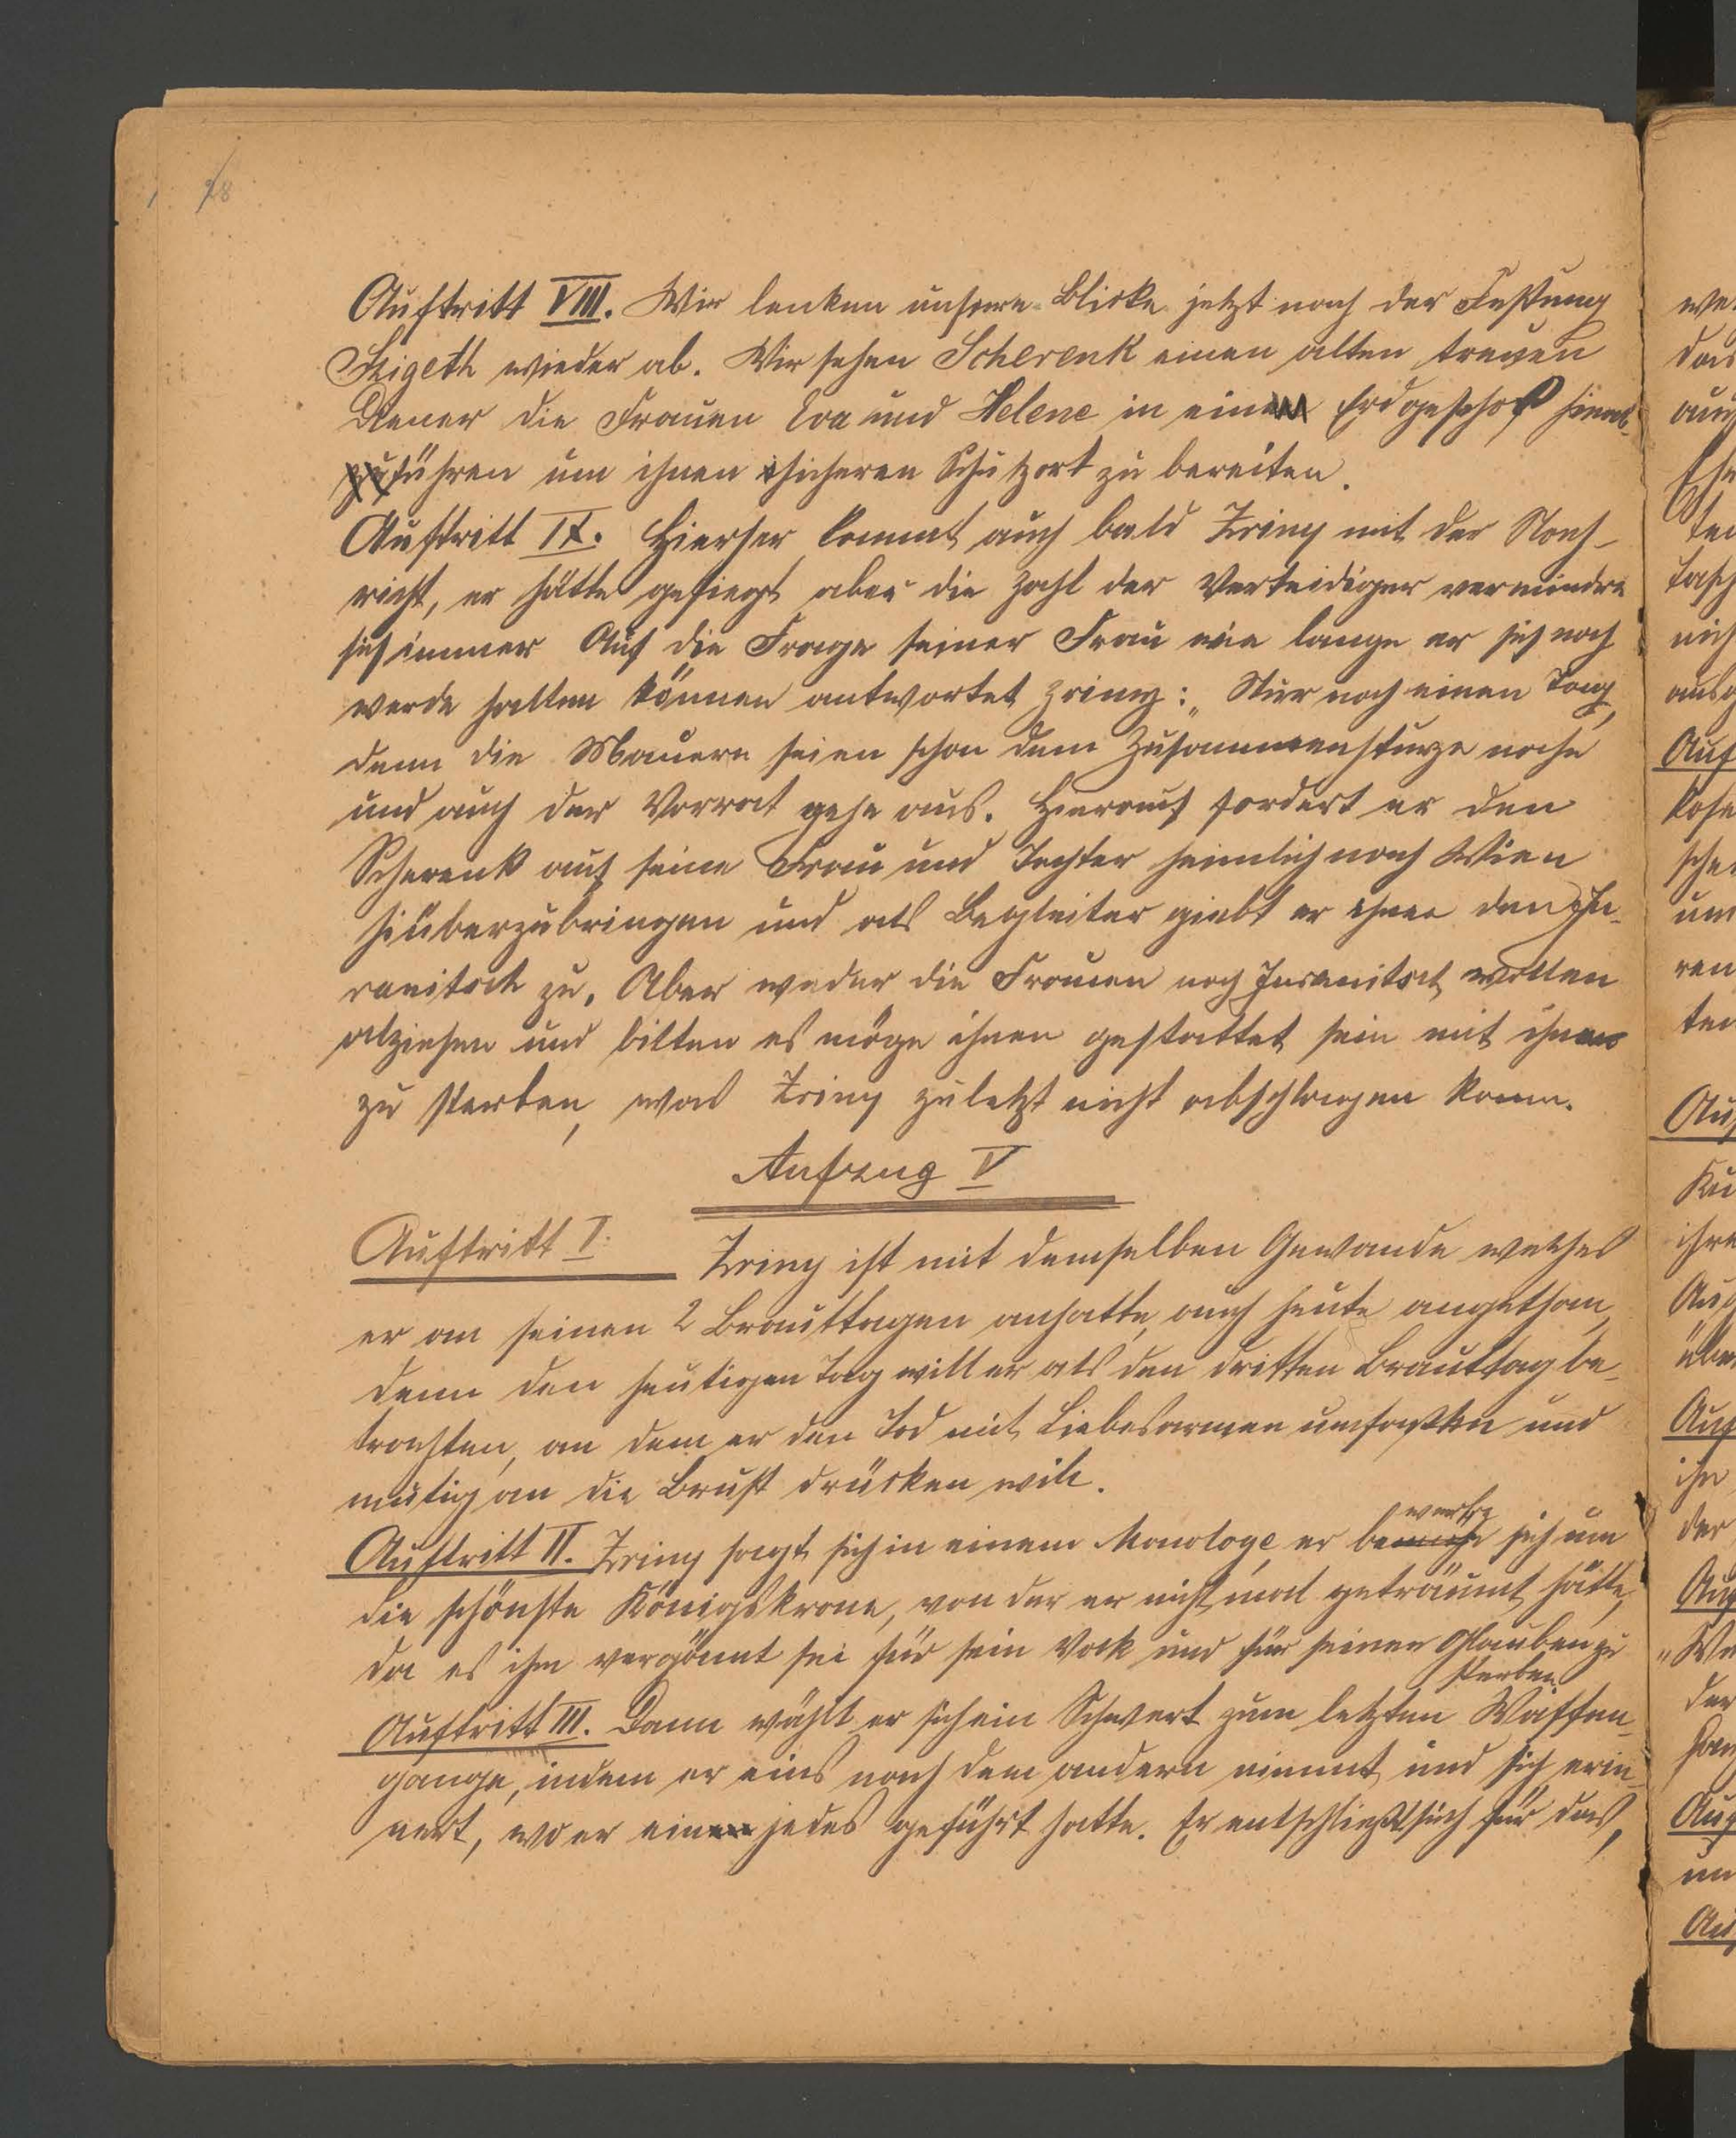 28
Auftritt VIII. Wir lenken unsere Blicke jetzt nach der Festung
Szigeth wieder ab. Wir sehen Scherenk einen alten treuen
Diener die Frauen Eva und Helene in ein Erdgeschoß hinab-
führen um ihnen sicheren Schutzort zu bereiten.
Auftritt IX. Hierher kommt auch bald Zriny mit der Nach-
richt, er hätte gesiegt aber die Zahl der Verteidiger vermindre
sich immer Auf die Frage seiner Frau wie lange er sich noch
werde halten können antwortet Zriny: „Nur noch einen Tag,
denn die Mauern seien schon dem Zusammensturze nahe
und auch der Vorrat gehe aus. Hierauf fordert er den
Scherenk auf seine Frau und Tochter heimlich nach Wien
hinüberzubringen und als Begleiter giebt er ihnen den Ju-
ranitsch zu. Aber weder die Frauen noch Juranitsch wollen
abziehen und bitten es möge ihnen gestattet sein mit ihnen
zu sterben, was Zriny zuletzt nicht abschlagen kann.
Aufzug V
Auftritt I. Zriny ist mit demselben Gewande welches
er an seinen 2 Brauttagen anhatte, auch heute angethan,
denn den heutigen Tag will er als den dritten Brauttag be-
trachten, an dem er den Tod mit Liebesarmen umfassen und
mutig an die Brust drücken will.
werbe
Auftritt II. Zriny sagt sich in einem Monologe er sich um
die schönste Königskrone, von der er nicht mal geträumt hätte,
da es ihm vergönnt sei für sein Volk und für seinen Glauben zu
sterben.
Auftritt III. Dann wählt er sich ein Schwert zum letzten Waffen-
gange, indem er eins nach dem andern nimmt und sich erin-
nert, wo er ein jedes geführt hatte. Er entschließt sich für das,